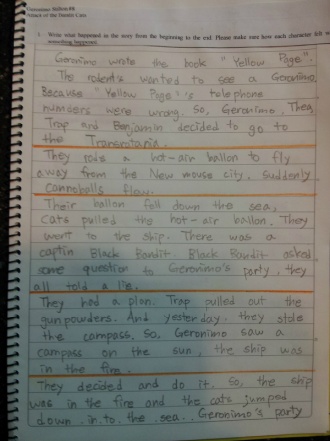 Geronimo Stilton #8
Attack of the Bandit Cats
1. Write what happened in the story from the beginning to the end. Please make sure how each character felt
something happened.
Geronimo wrote the book "Yellow Page".
The rodents wanted to see a Geronimo.
Because "Yellow Page"'s telephone
numbers were wrong. So, Geronimo, Thea,
Trap and Benjamin decided to go to
the Transratania.
They rode a hot-air ballon to fly
away from the New mouse city. Suddenly
Cannoballs flew.
Their ballon fell down the sea,
Cats pulled the hot-air ballon. They
went to the ship. There was a
captin Black Bandit. Black Bandit asked
some question to Geronimo's party, they
all told a lie.
They had a plan. Trap pulled out the
gunpowders. And yesterday, they stole
the compass, So, Geronimo saw a
compass on the sun, the ship was
in the fire.
They decided and do it. So, the ship
was in the fire and the cats jumped
down in to the sea. Geronimo's party